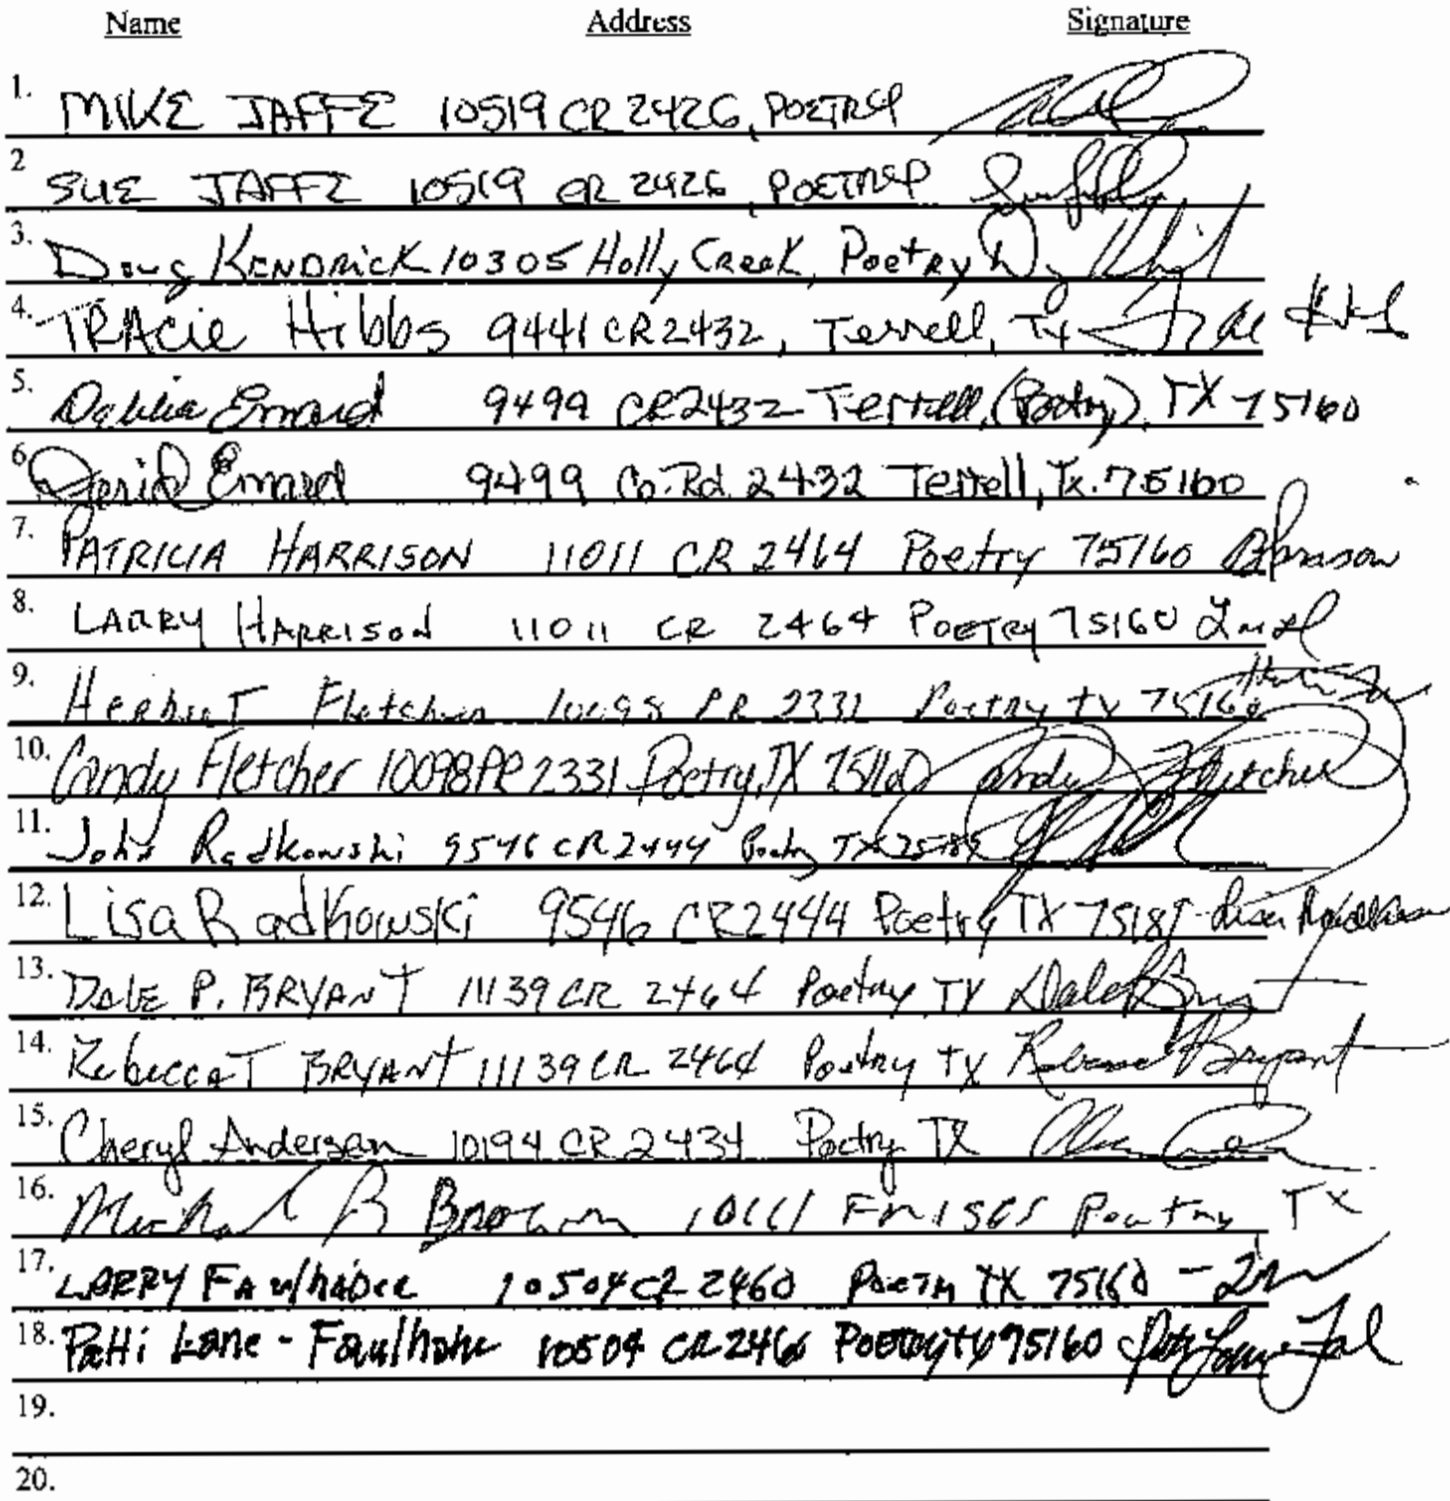 Name Address Signature
1. MIKE JAFFE 10519 CR 2426, POETRY
2 SUE JAFFE 10519 CR 2426, POETRY
3. Doug KENDRICK 10305 Holly Creek, Poetry
4. TRACie Hibbs 9441 CR2432, Terrell, Tx
5. Dahlia Emard 9499 CR2432 Terrell, (Poetry), TX 75160
6. David Emard 9499 Co. Rd. 2432 Terrell, Tx. 75160
7. PATRICIA HARRISON 11011 CR 2464 Poetry 75160
8. LARRY HARRISON 11011 CR 2464 POETRY 75160
9. Herbert Fletcher PR 2331 Poetry tx 75160
10. Candy Fletcher 10098 PR 2331 Poetry, TX 75160 Candy Fletcher
11. John Radkowski 9546 CR 2444 Poetry TX
12. Lisa Radkowski 9546 CR2444 Poetry TX 75189 Lisa Radkowski
13. DALE P. BRYANT 11139 CR 2464 Poetry TX Dale Bryant
14. Rebecca T BRYANT 11139 CR 2464 Poetry TX Rebecca Bryant
15. Cheryl Anderson 10194 CR 2434 Poetry TX
16. Michael B Brown FM 1565 Poetry TX
17. LARRY FAulhaber 10504 CR 2460 Poetry TX 75160 -
18. Patti Lane - Faulhaber 10504 CR 2460 POETRY tx 75160
19.
20.